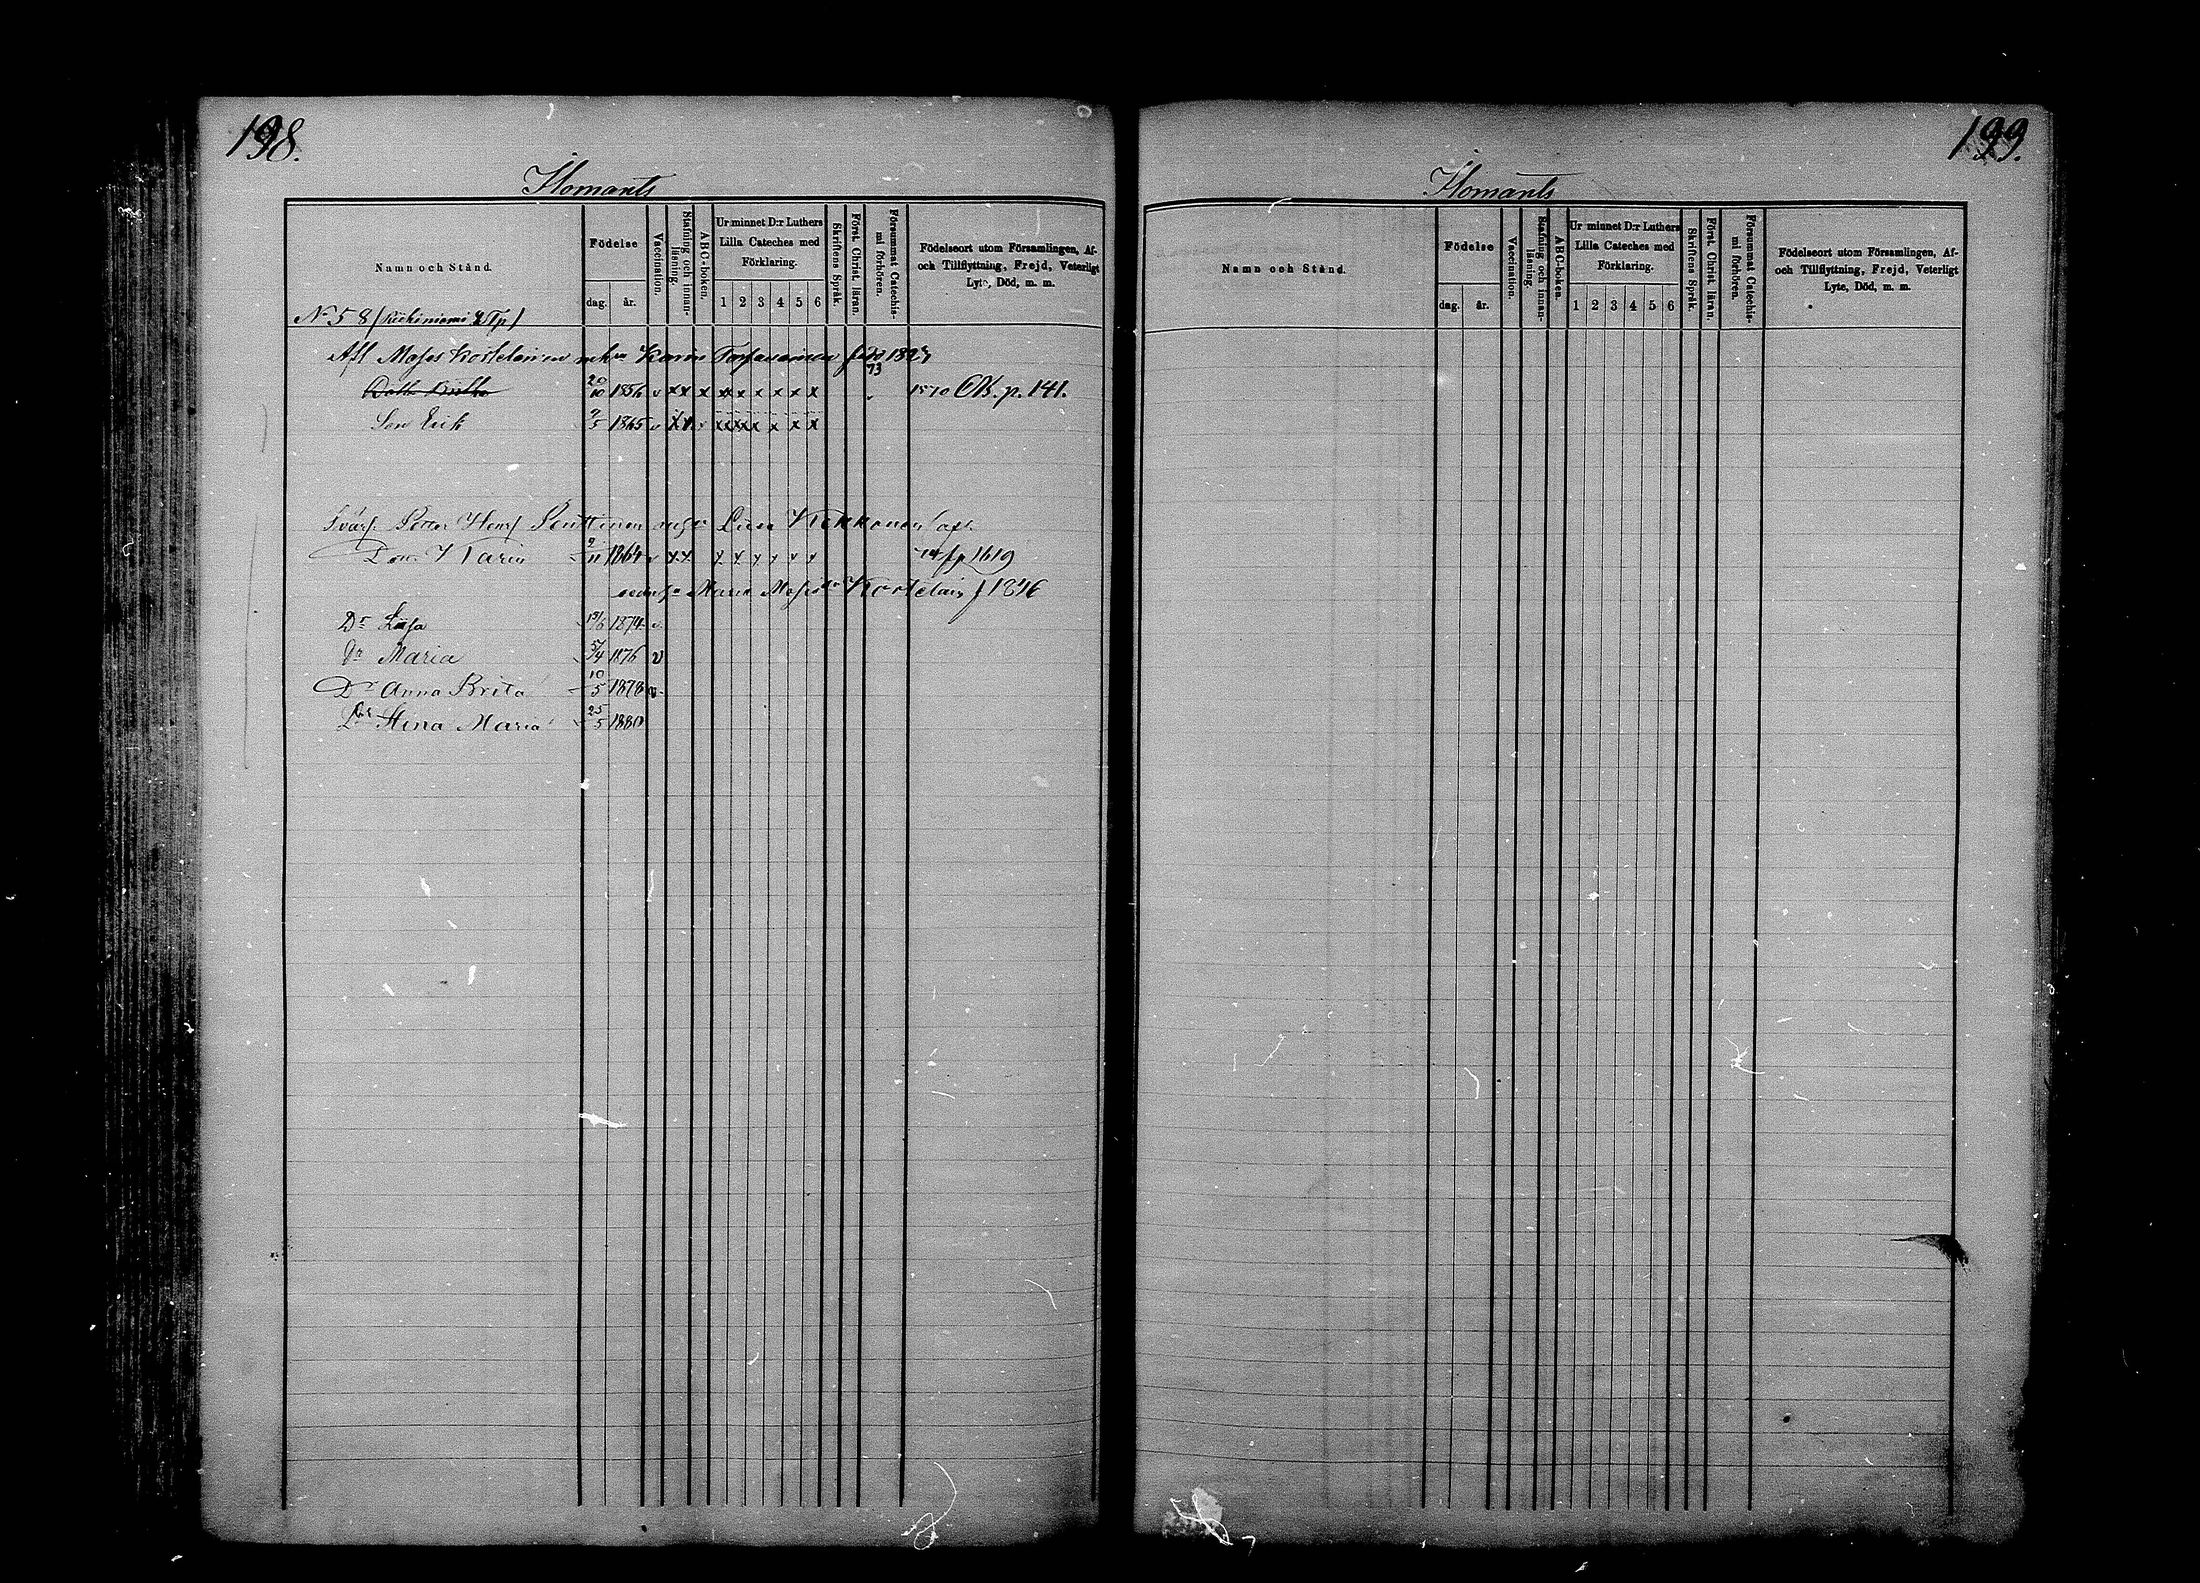 198.
Ilomants
Namn och Stånd.
Födelse
dag. år.
Vaccination.
Stafning och innan-läsning.
ABC-boken.
Ur minnet D:r Luthers
Lilla Cateches med
Förklaring.
1 2 3 4 5 6
Skriftens Språk.
Först. Christ. läran.
Försummat Catechis-mi förhören.
Födelseort utom Församlingen, Af-
och Tillflyttning, Frejd, Veterligt
Lyte, Död, m. m.
No 58
Afl Moses Kostelainen Karin 1827
73
Dott. Britha 20/10 1856 v x x x x x x x x x 1870 CB. p. 141.
Son Erik 9/5 1865 v
Petter Henr Penttinen Lisa Kokkonen
Karin 9/11 1864 v x x x x x x x x p 1619
Maria Moses dr Kostelain f 1846
Dr Lisa 19/6 1874 v
Dr Maria 5/4 1876 v
Dr Anna Brita 10/5 1878 v
Dr Stina Maria 25/5 1880
199.
Ilomants
Namn och Stånd.
Födelse
dag. år.
Vaccination.
Stafning och innan-läsning.
ABC-boken.
Ur minnet D:r Luthers
Lilla Cateches med
Förklaring.
1 2 3 4 5 6
Skriftens Språk.
Först. Christ. läran.
Försummat Catechis-mi förhören.
Födelseort utom Församlingen, Af-
och Tillflyttning, Frejd, Veterligt
Lyte, Död, m. m.